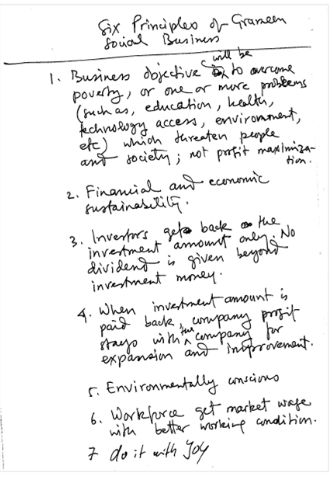 Six Principles of Grameen
Social Business
1. Business objective will be to overcome
poverty, or one or more problems
(such as, education, health,
technology access, environment,
etc) which threaten people
and society; not profit maximiza-
tion.
2. Financial and economic
sustainability.
3. Investors get back the
investment amount only. No
dividend is given beyond
investment money.
4. When investment amount is
paid back, company profit
stays with the company for
expansion and improvement.
5. Environmentally conscious
6. Workforce get market wage
with better working condition.
7 do it with Joy